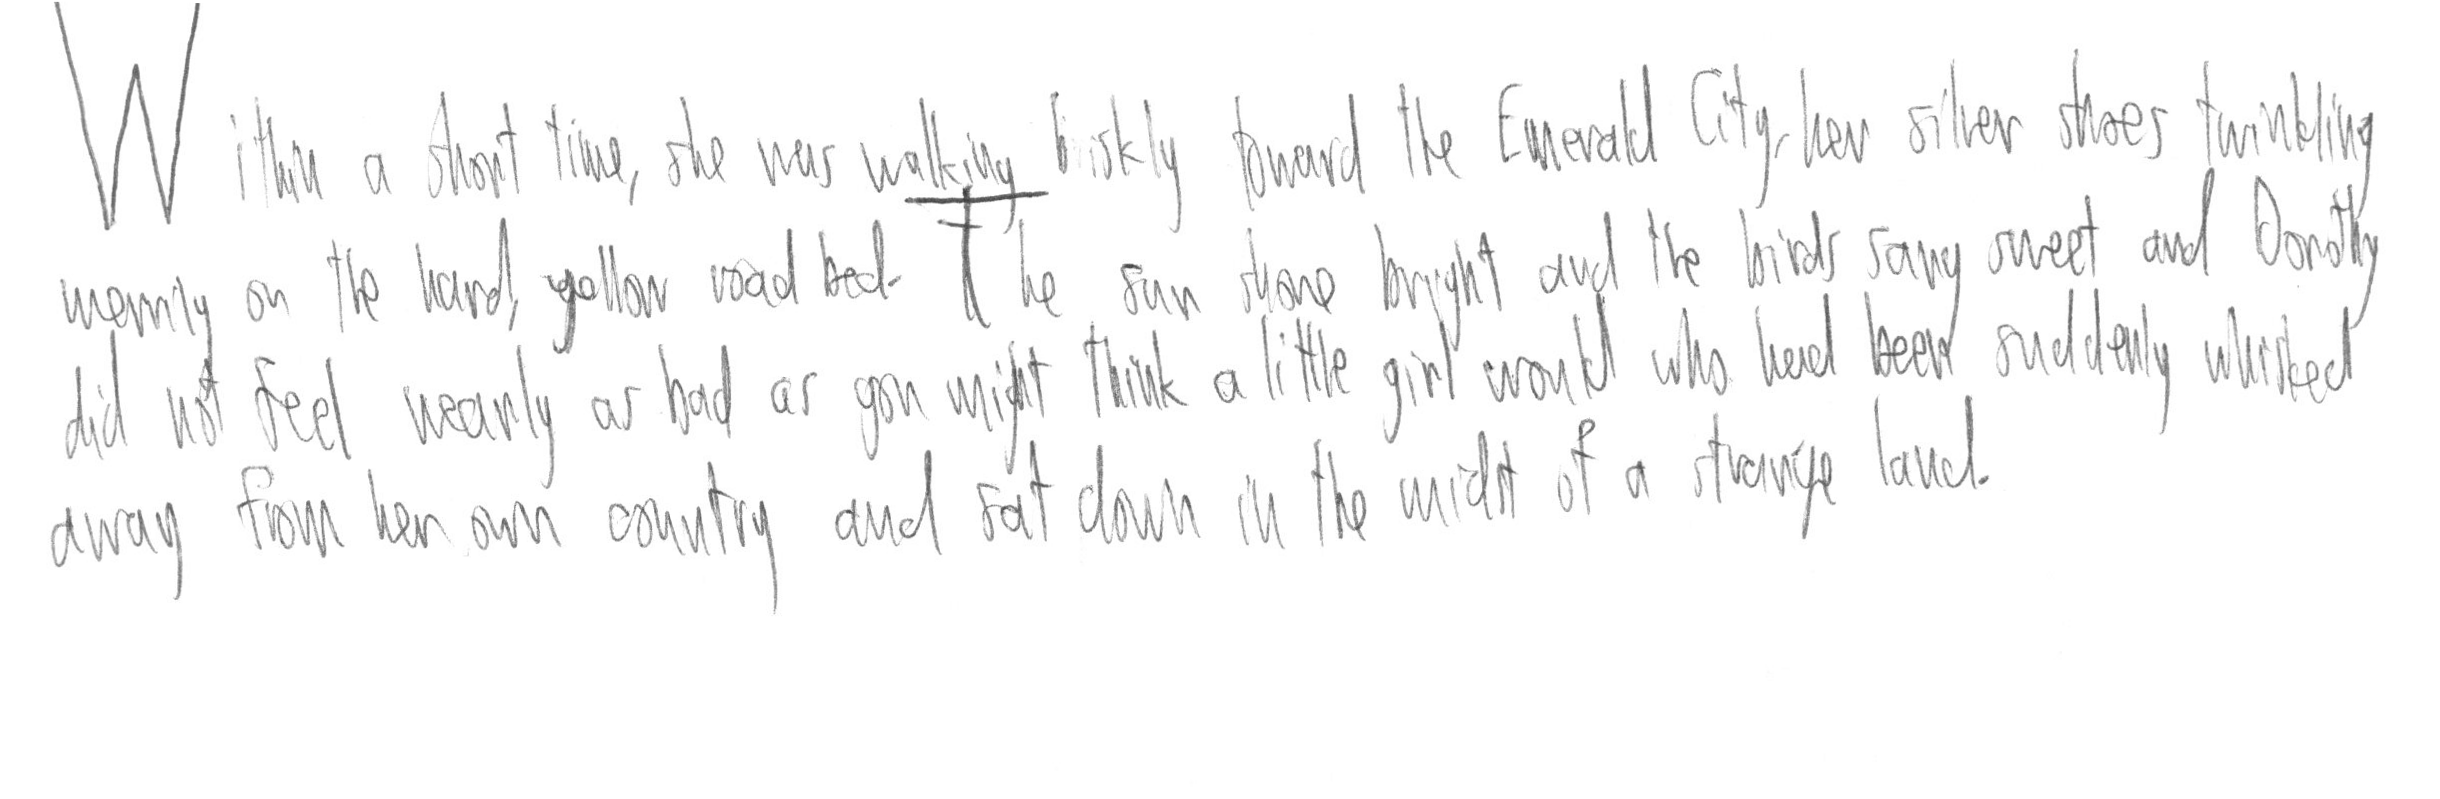 Within a short time, she was walking briskly toward the Emerald City, her silver shoes twinkling
merrily on the hard, yellow road bed. The sun shone bright and the birds sang sweet and Dorothy
did not feel nearly as bad as you might think a little girl would who had been suddenly whisked
away from her own country and sat down in the midst of a strange land.